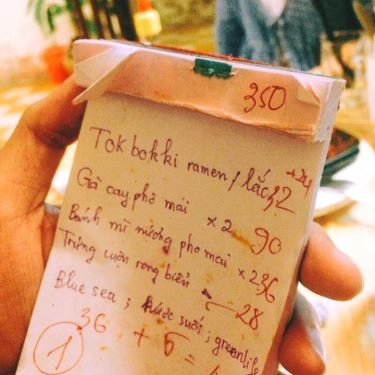 350
Tokbokki ramen / lắc 32 +24
Gà cay phô mai x2 90
Bánh mì nướng pho mai x2 36
Trứng cuộn rong biển 28
Blue sea ; nước suối ; greenlife
36 + 5 =
1